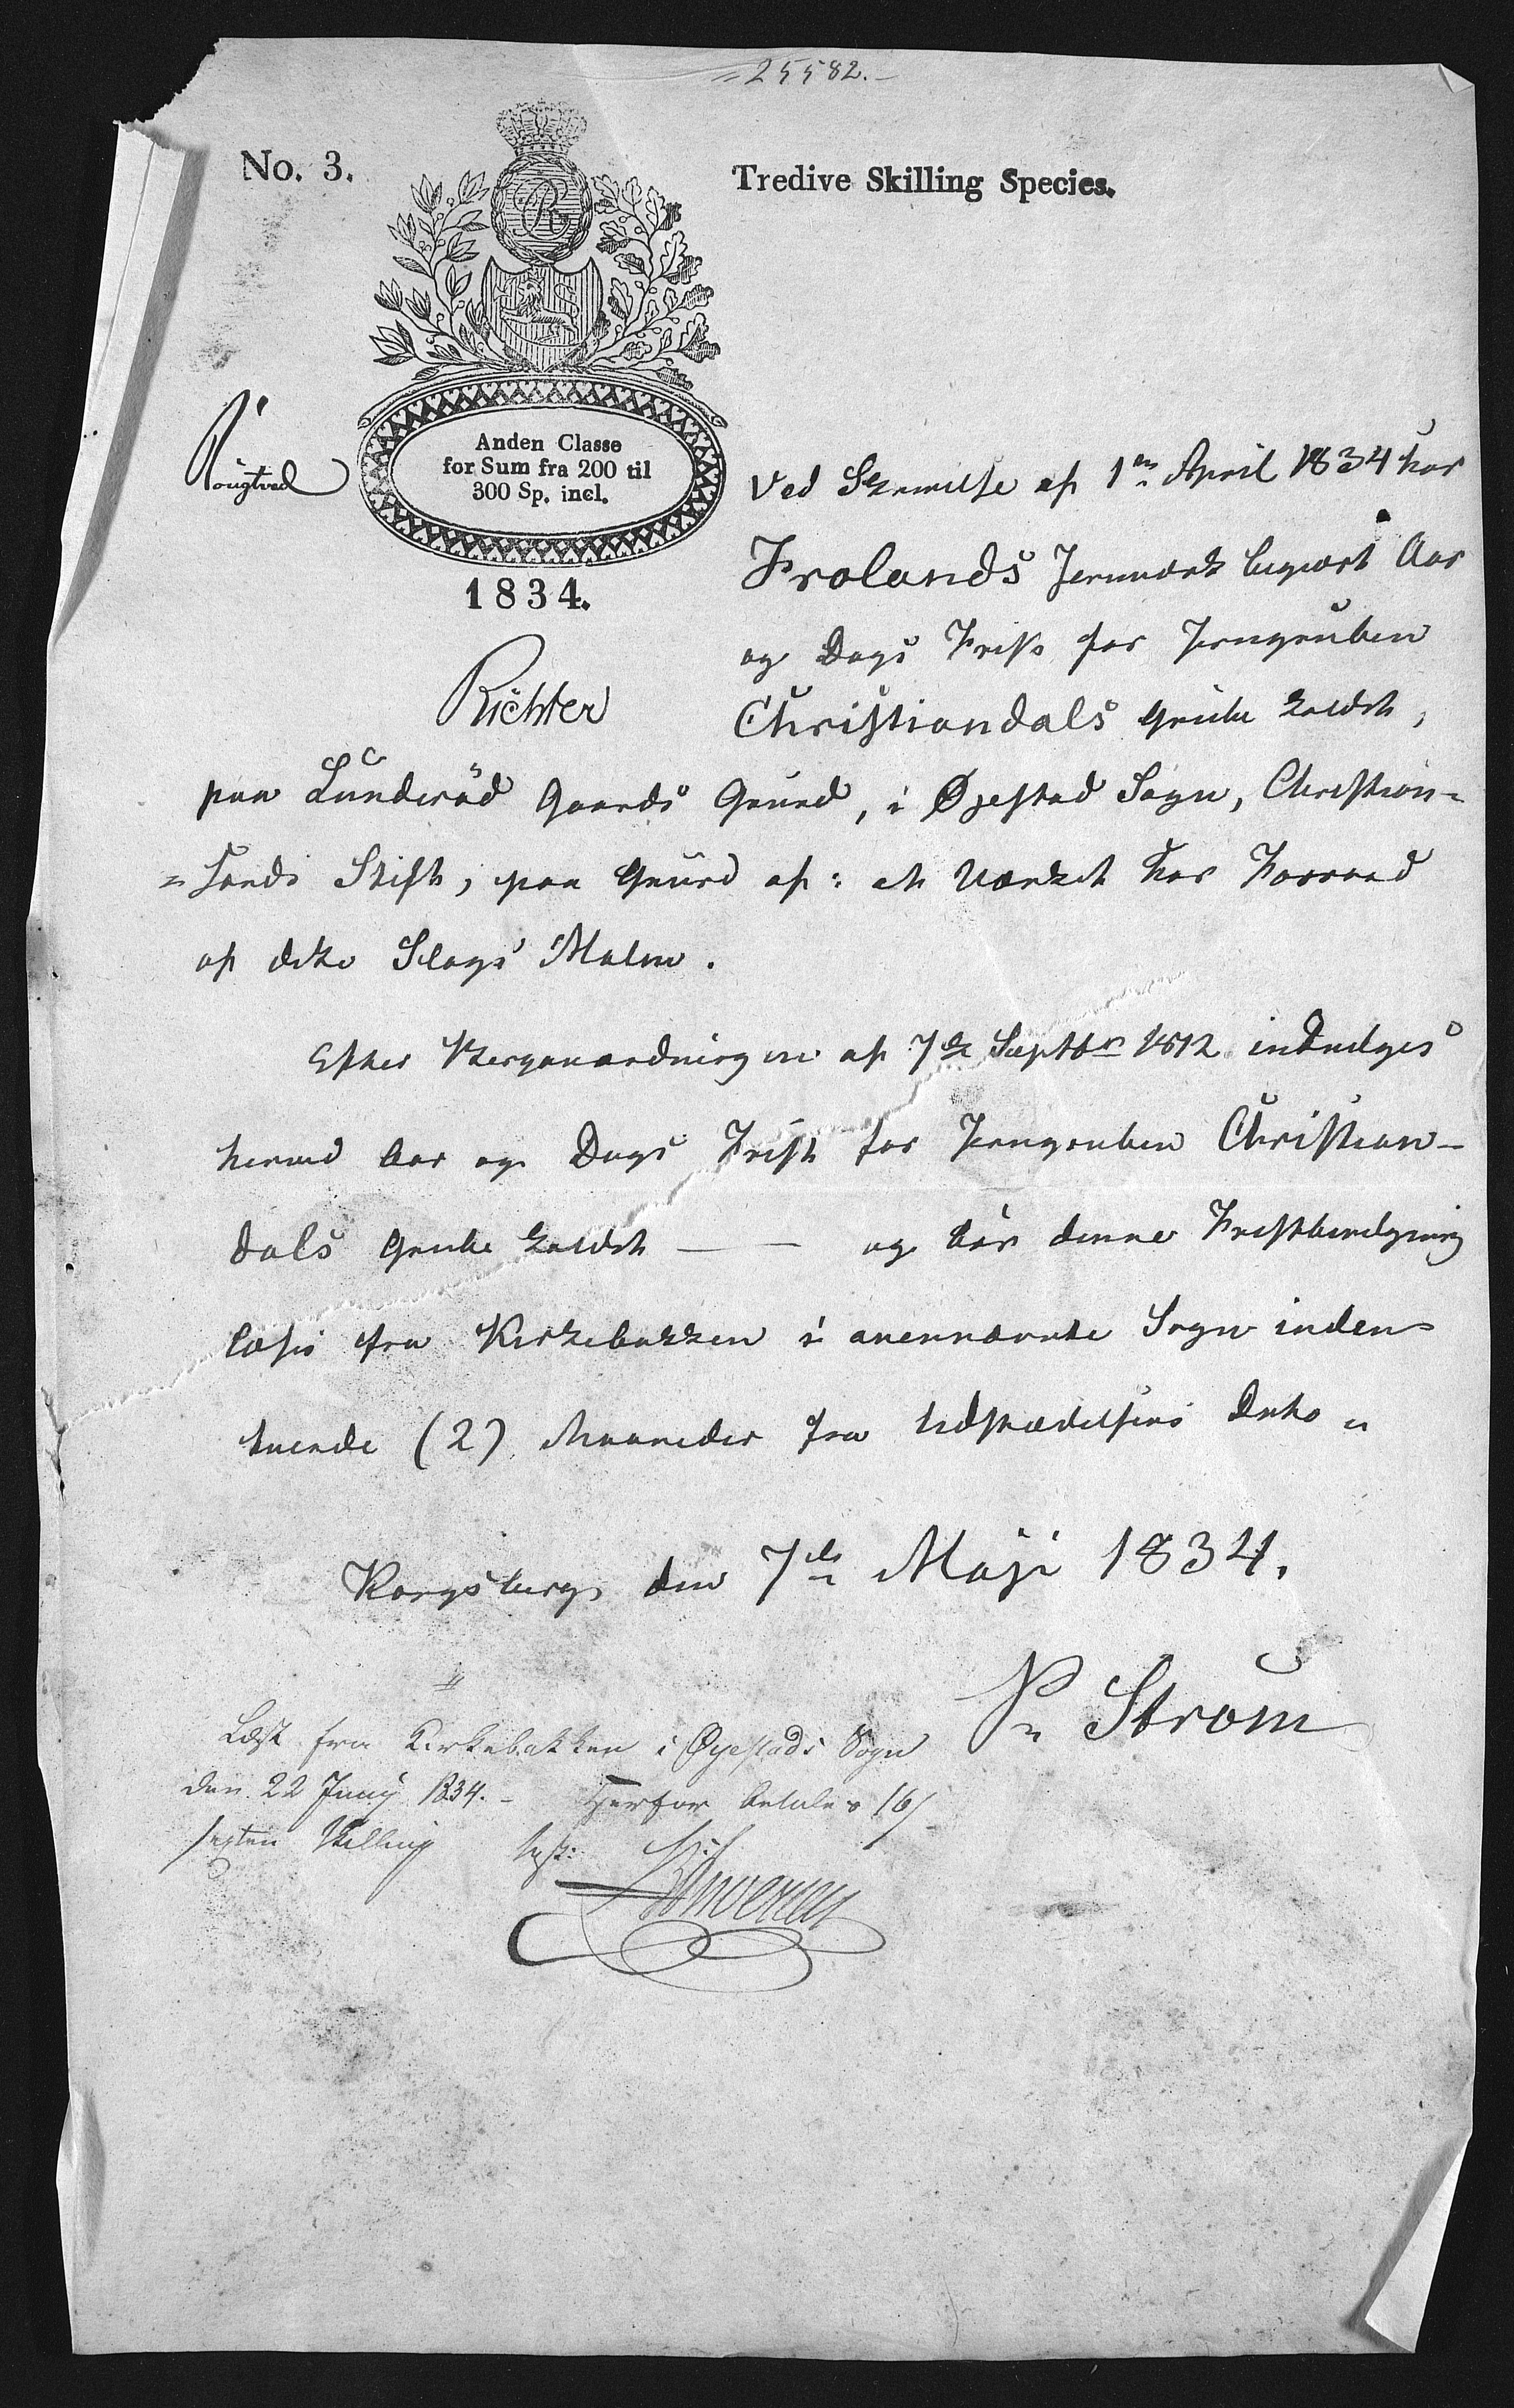 =25582.-
No. 3.
Tredive Skilling Species.
Anden Classe
for Sum fra 200 til
300 Sp. incl.
1834.
Richter
Ved Skrivelse af 1ste April 1834 har
Frolands Jernværk begjært Aar
og Dags Frist for Jerngruben
Christiandals Grube kaldet,
paa Lunderød Gaards Grund, i Øjestad Sogn, Christian=
=sands Stift, paa Grund af: at Værket har Forraad
af dette Slags Malm.
Efter Berganordningen af 7de Septbr 1812 indvilges
herved Aar og Dags Frist for Jerngruben Christian-
dals Grube kaldet — — og bør denne Fristbevilgning
læses fra Kirkebakken i anennævnte Sogn inden
tvende (2) Maaneder fra Udstædelsens Dato.
Kongsberg den 7de Maji 1834.
P. Strøm
Læst fra Kirkebakken i Øyestads Sogn
den 22 Junij 1834.- Herfor betales 16/
sexten Skilling test: